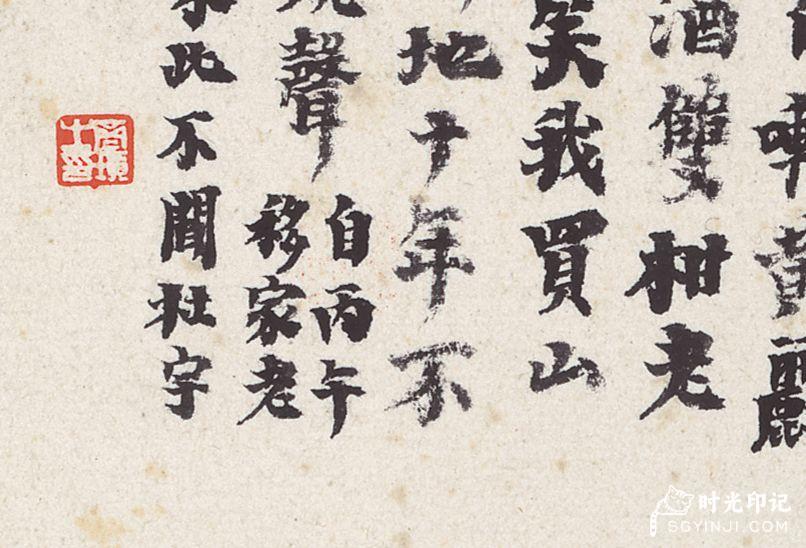 黃
酒雙柑老
笑我買山
地十年不
聲
自丙午
移家老
此不聞杜宇
时光印记
SGYINJI.COM